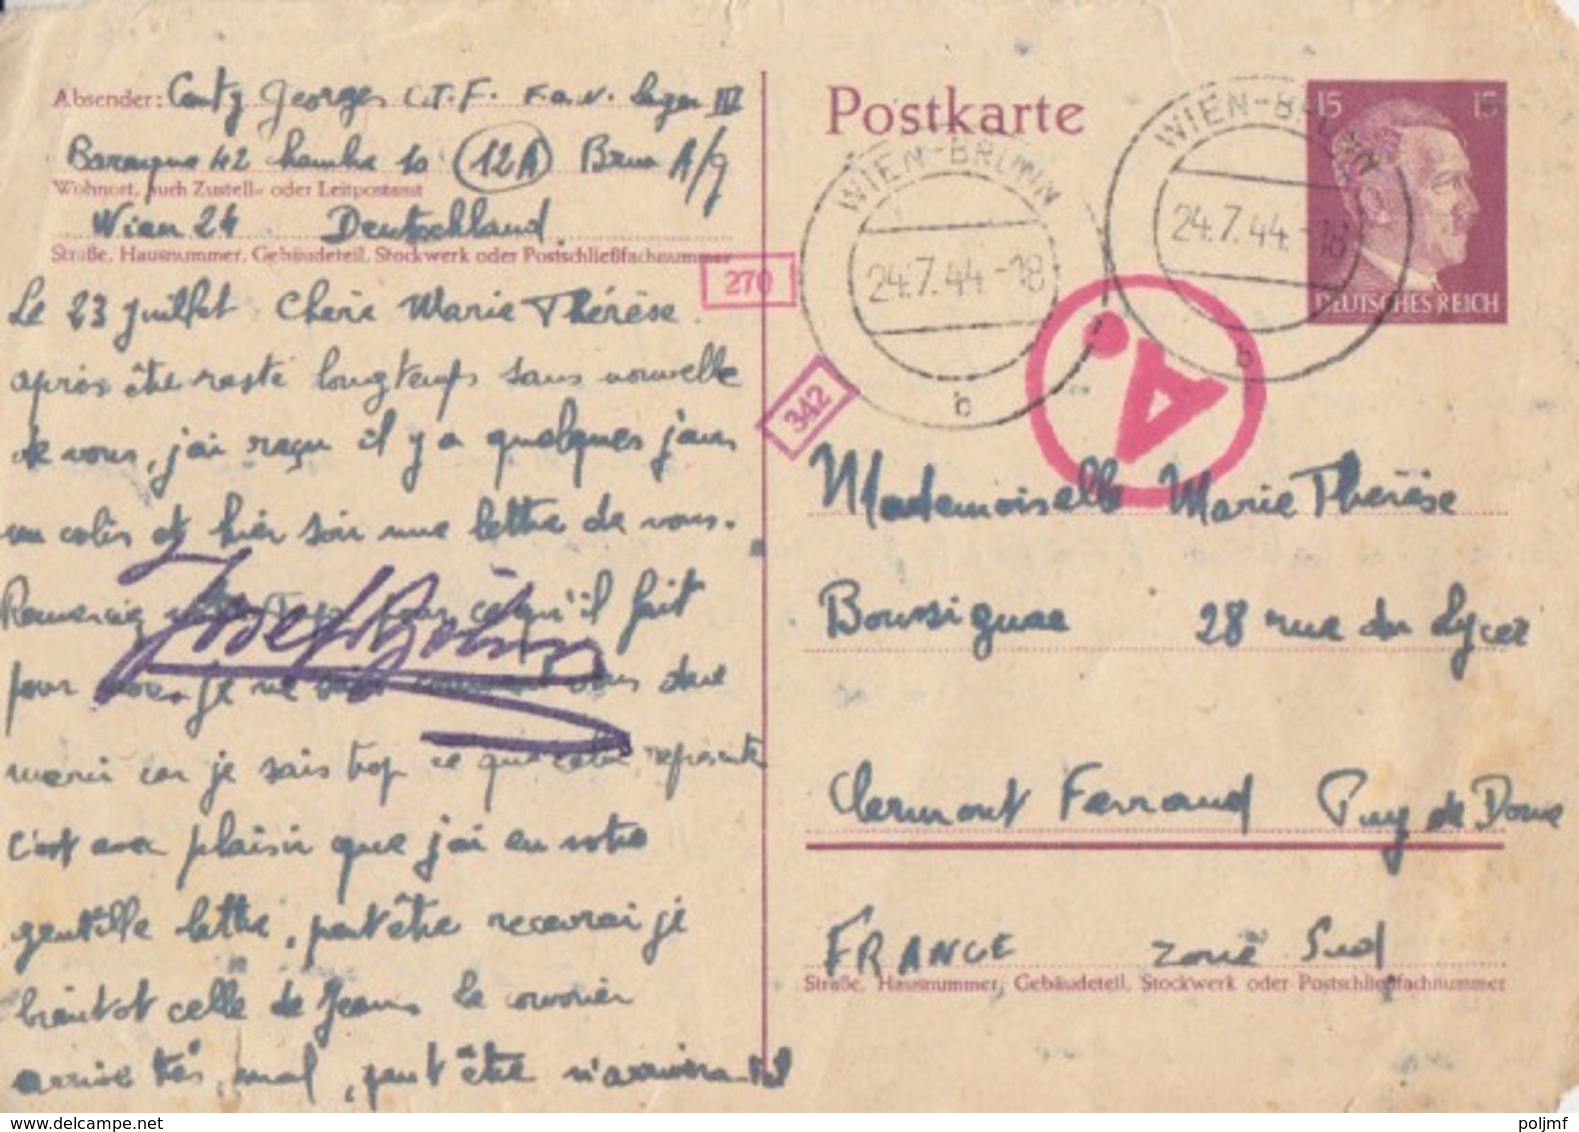 Absender: Conty Georges C.T.F. F.O.W. Lager IV
Baraque 42 chambre 10 (12A) Brun A/g
Wohnort, auch Zustell- oder Leitpostamt
Wien 24 Deutschland
Straße, Hausnummer, Gebäudeteil, Stockwerk oder Postschließfachnummer
Le 23 juillet Chère Marie Thérèse.
après être resté longtemps sans nouvelle
de vous, j'ai reçu il y a quelques jours
un colis et hier soir une lettre de vous.
Remerciez pour ce qu'il fait
pour moi. je ne sais comment vous dire
merci car je sais trop ce que cela représente
c'est avec plaisir que j'ai eu votre
gentille lettre, peut être recevrai je
bientot celle de Jean le courrier
arrive très mal, peut être n'arrivera t'il
270
342
Postkarte
WIEN-BRUNN
24.7.44-18
b
WIEN-BRUNN
24.7.44-18
b
15 15
DEUTSCHES REICH
A.
Mademoiselle Marie Thérèse
Boussignac 28 rue du Lycée
Clermont Ferrand Puy de Dome
FRANCE zone Sud
Straße, Hausnummer, Gebäudeteil, Stockwerk oder Postschließfachnummer
www.delcampe.net
poljmf